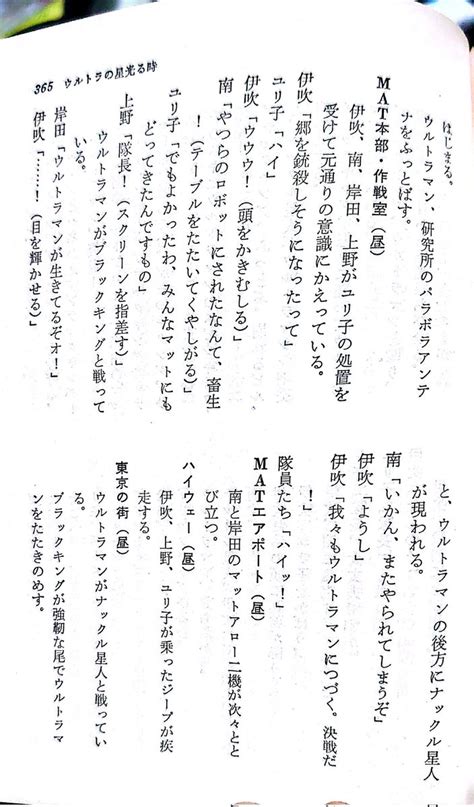 365 ウルトラの星光る時
はじまる。
ウルトラマン、研究所のパラボラアンテ
ナをふっとばす。
MAT本部・作戦室（昼）
伊吹、南、岸田、上野がユリ子の処置を
受けて元通りの意識にかえっている。
伊吹「郷を銃殺しそうになったって」
ユリ子「ハイ」
伊吹「ウウウ！（頭をかきむしる）」
南「やつらのロボットにされたなんて、畜生
！（テーブルをたたいてくやしがる）」
ユリ子「でもよかったわ、みんなマットにも
どってきたんですもの」
上野「隊長！（スクリーンを指差す）」
ウルトラマンがブラックキングと戦って
いる。
岸田「ウルトラマンが生きてるぞオ！」
伊吹「……！（目を輝かせる）」
と、ウルトラマンの後方にナックル星人
が現われる。
南「いかん、またやられてしまうぞ」
伊吹「ようし」
伊吹「我々もウルトラマンにつづく。決戦だ
！」
隊員たち「ハイッ！」
MATエアポート（昼）
南と岸田のマットアロー二機が次々とと
び立つ。
ハイウェー（昼）
伊吹、上野、ユリ子が乗ったジープが疾
走する。
東京の街（昼）
ウルトラマンがナックル星人と戦ってい
る。
ブラックキングが強靭な尾でウルトラマ
ンをたたきのめす。